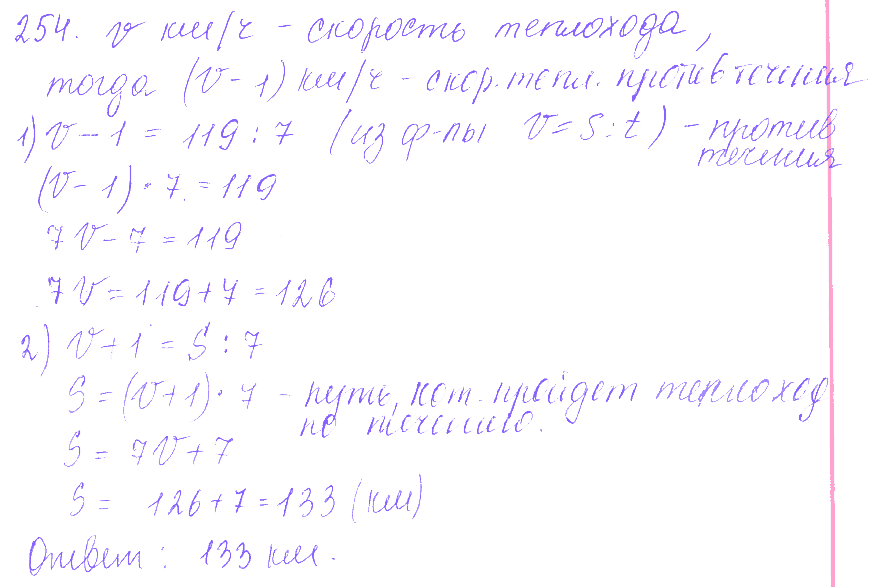 254. v км/ч - скорость теплохода,
тогда (v-1) км/ч - скор. тепл. против течения
1) v-1 = 119 : 7 (из ф-лы v = S : t) - против
течения
(v-1) · 7 = 119
7v - 7 = 119
7v = 119+7 = 126
2) v+1 = S : 7
S = (v+1) · 7 - путь, кот. пройдет теплоход
по течению.
S = 7v+7
S = 126+7 = 133 (км)
Ответ: 133 км.